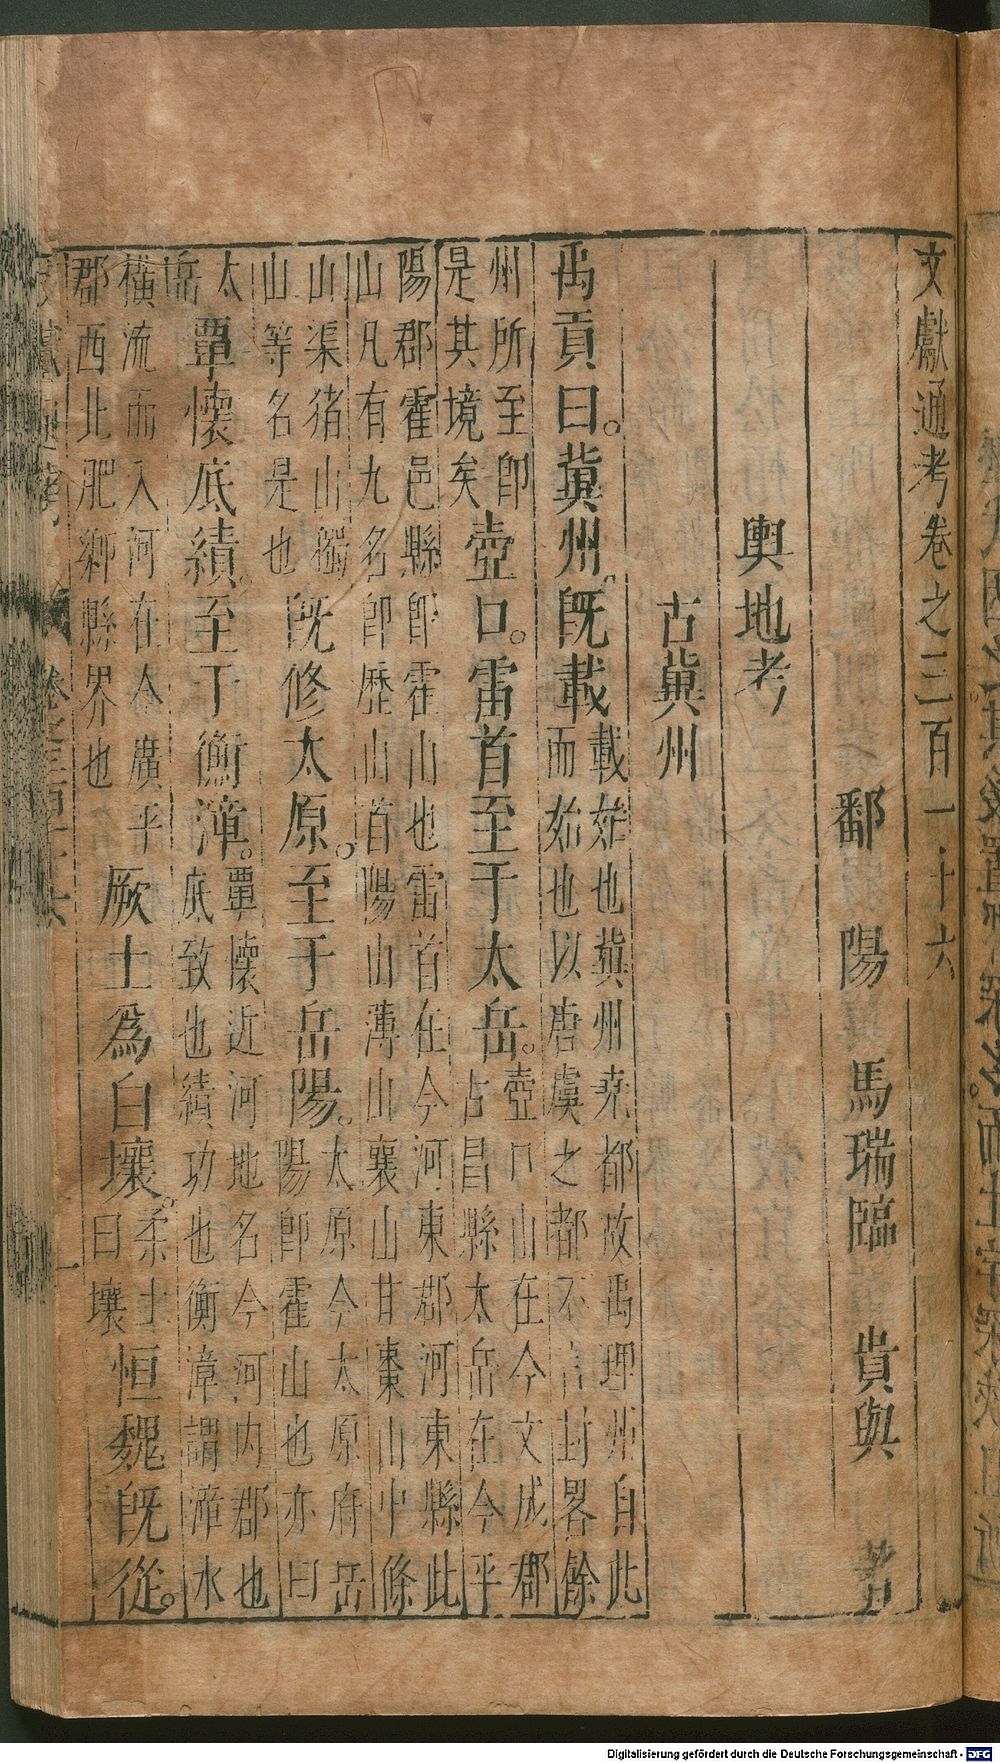 文獻通考卷之三百一十六
鄱陽馬瑞臨貴與著
輿地考
古冀州
禹貢曰。冀州。旣載載始也冀州堯都故禹理州自此而始也以唐虞之都不言封畧餘
州所至卽是其境矣壺口。雷首至于太岳。壺口山在今文成郡古昌縣太岳在今平
陽郡霍邑縣卽霍山也雷首在今河東郡河東縣此山凡有九名卽歷山首陽山薄山襄山甘棗山中條
山渠猪山獨山等名是也旣修太原。至于岳陽。太原今太原府岳陽卽霍山也亦曰
太岳覃懷底績。至于衡漳。覃懷近河地名今河内郡也底致也績功也衡漳謂漳水
橫流而入河在今廣平郡西北肥鄉縣界也厥土爲白壤。柔土曰壤恒魏旣從。
Digitalisierung gefördert durch die Deutsche Forschungsgemeinschaft - DFG